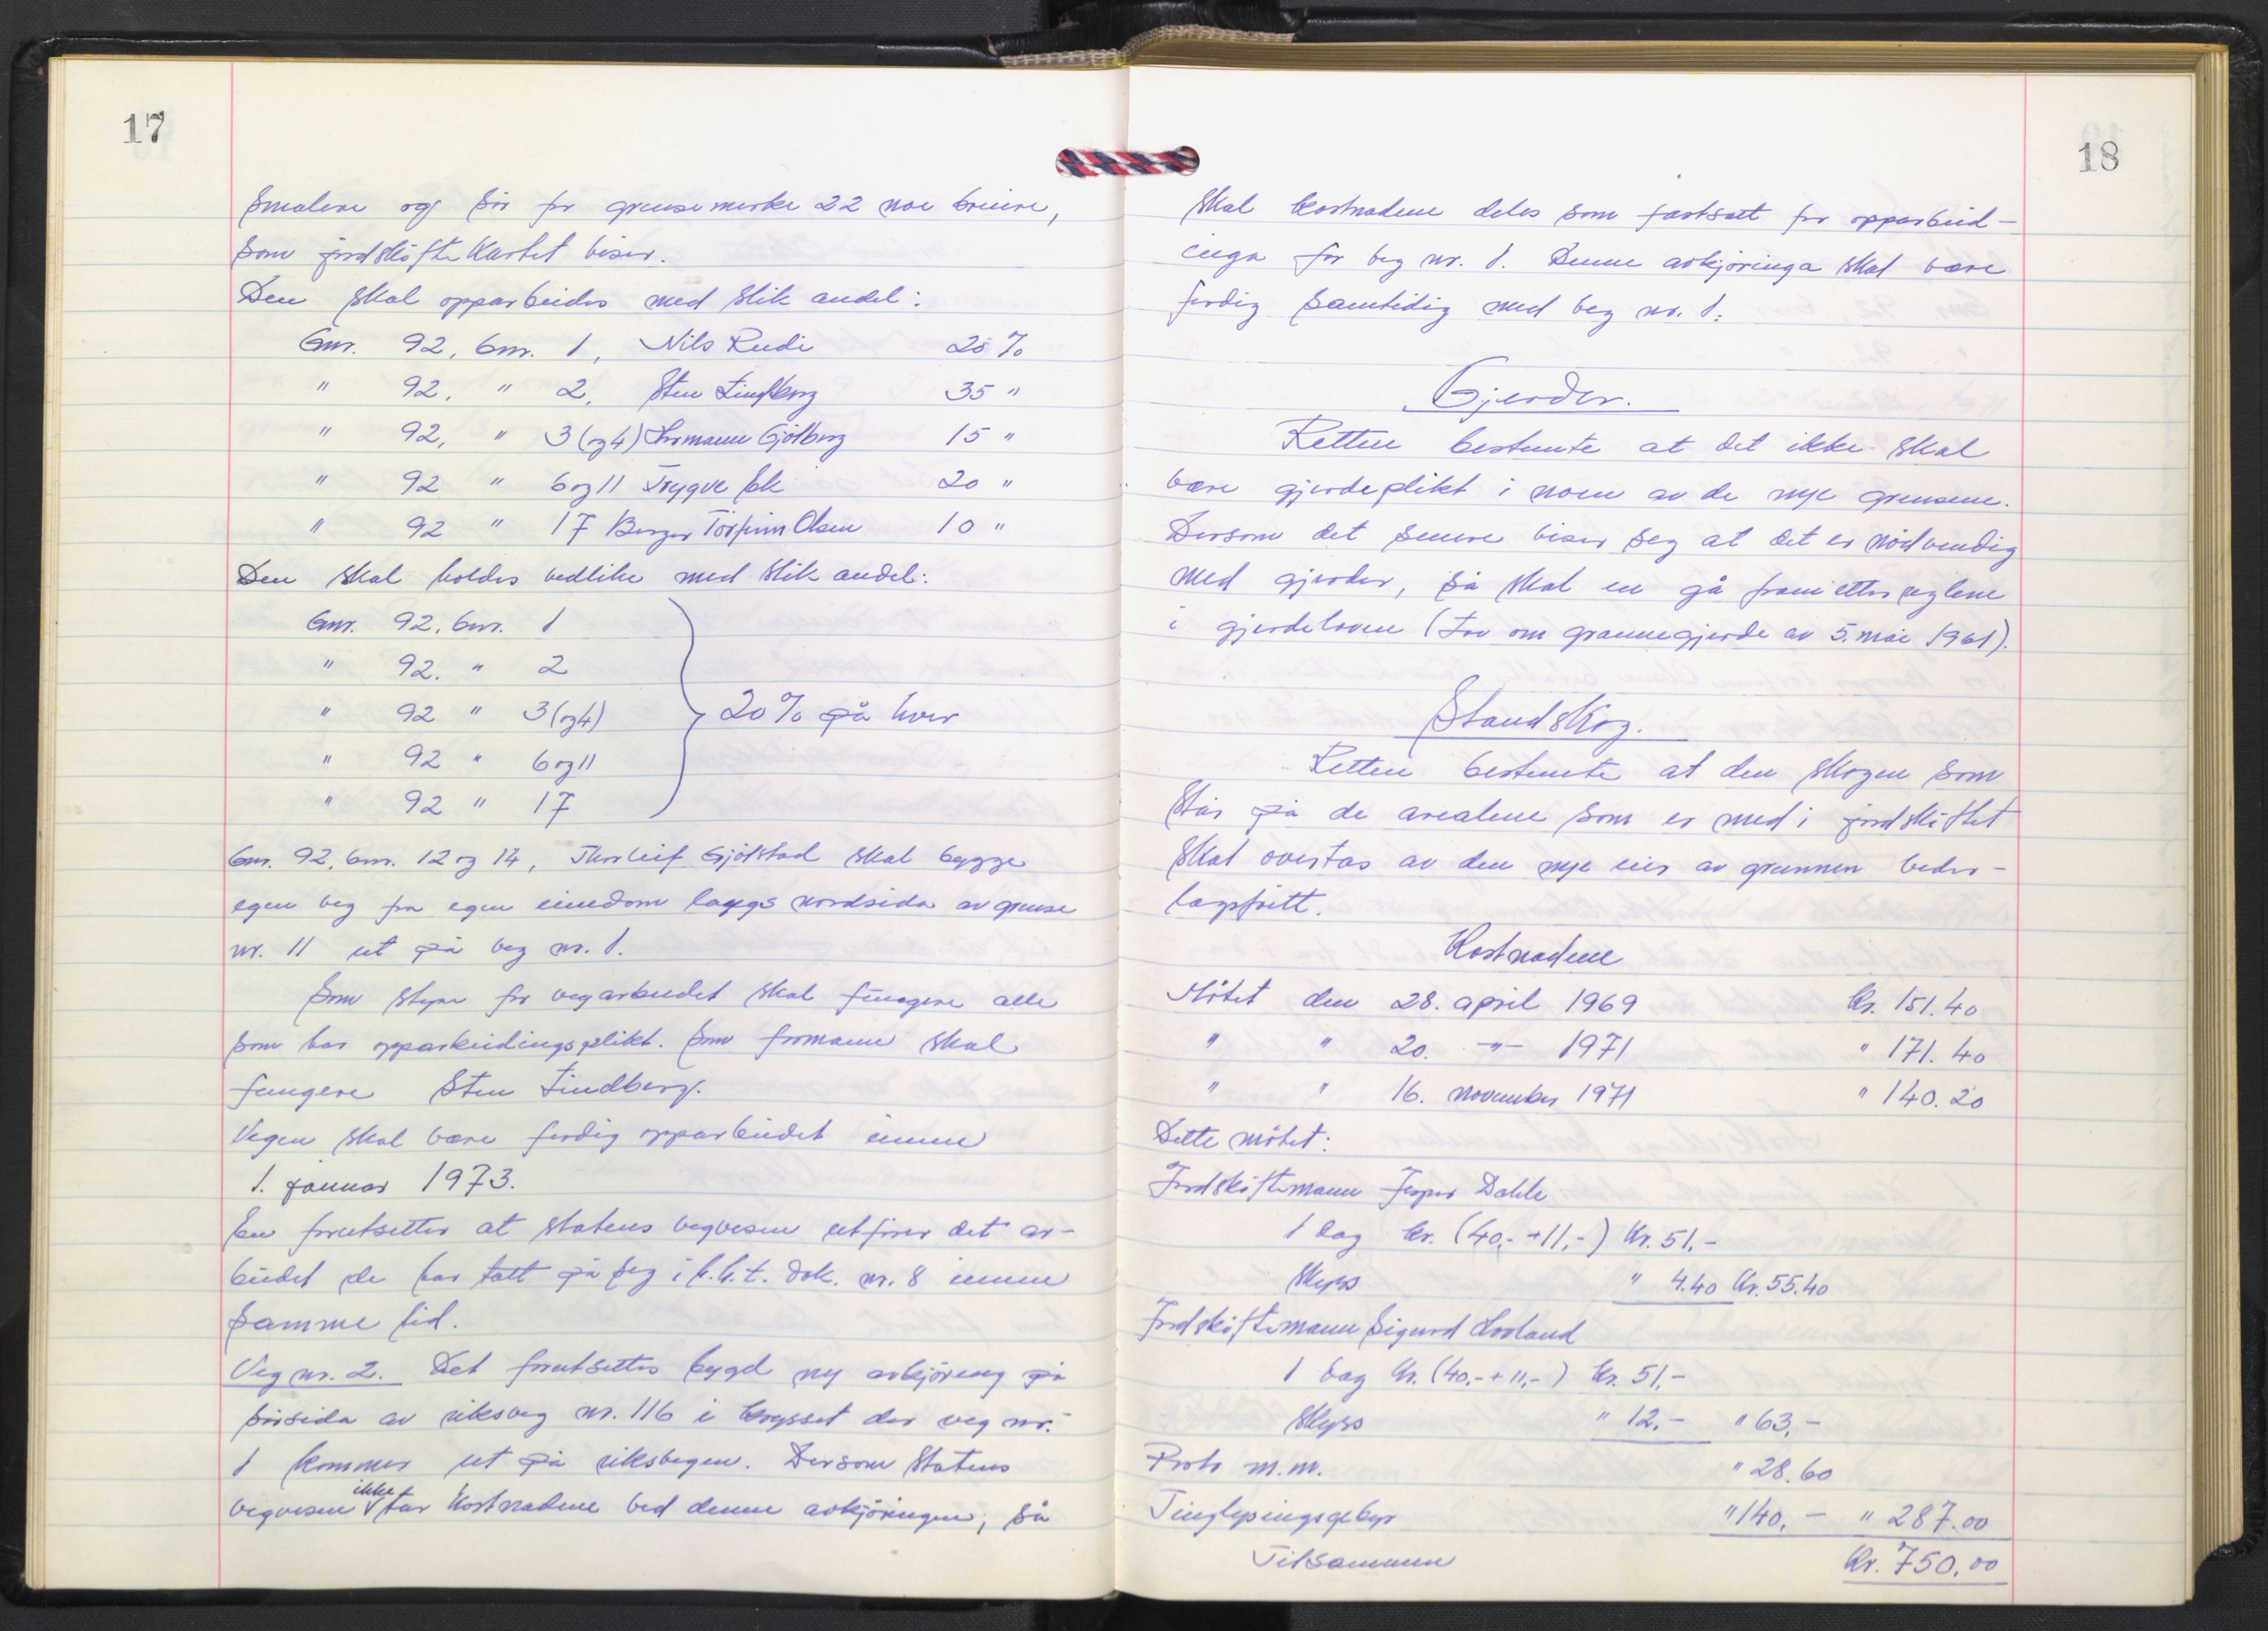 17
smalere og sør for grensemerke 22 noe breiere,
som jordskiftekartet viser.
Den skal opparbeides med slik andel:
Gnr. 92, bnr. 1, Nils Rudi 20 %
" 92, " 2, Sten Lindberg 35 "
" 92, " 3 (og 4) Hermann Gjölberg 15 "
" 92 " 6 og 11 Trygve Ek 20 "
" 92 " 17 Berger Torfinn Olsen 10 "
Den skal holdes vedlike med slik andel:
Gnr. 92, bnr. 1
" 92. " 2
" 92 " 3 (og 4) 20 % på hver
" 92 " 6 og 11
" 92 " 17
Gnr. 92, bnr. 12 og 14, Thorleif Gjölstad skal bygge
egen veg fra egen eiendom langs nordsida av grense
nr. 11 ut på veg nr. 1.
Som styre for vegarbeidet skal fungere alle
som har opparbeidingsplikt. Som formann skal
fungere Sten Lindberg.
Vegen skal være ferdig opparbeidet innen
1. januar 1973.
En forutsetter at statens vegvesen utfører det ar-
beidet de har tatt på seg i h.h.t. dok. nr. 8 innen
samme tid.
Veg nr. 2. Det forutsettes bygd ny avkjöring på
sörsida av riksveg nr. 116 i krysset der veg nr.
1 kommer ut på riksvegen. Dersom Statens
vegvesen ikke tar kostnadene ved denne avkjöringen, så
18
skal kostnadene deles som fastsatt for opparbeid-
inga for veg nr. 1. Denne avkjöringa skal være
ferdig samtidig med veg nr. 1.
Gjerder.
Retten bestemte at det ikke skal
være gjerdeplikt i noen av de nye grensene.
Dersom det senere viser seg at det er nödvendig
med gjerder, så skal en gå fram etter reglene
i gjerdeloven (Lov om grannegjerde av 5. mai 1961).
Standskog.
Retten bestemte at den skogen som
står på de arealene som er med i jordskiftet
skal overtas av den nye eier av grunnen veder-
lagsfritt.
Kostnadene
Mötet den 28. april 1969 Kr. 151.40
" " 20. -"- 1971 " 171.40
" " 16. november 1971 " 140.20
Dette mötet:
Jordskiftemann Jesper Dahle
1 dag kr. (40.- + 11,-) Kr. 51.-
Skyss " 4.40 Kr. 55.40
Jordskiftemann Sigurd Hovland
1 dag kr. (40.- + 11,-) Kr. 51.-
Skyss " 12.- " 63.-
Porto m.m. " 28.60
Tinglysingsgebyr " 140.- " 287.00
Tilsammen Kr. 750.00